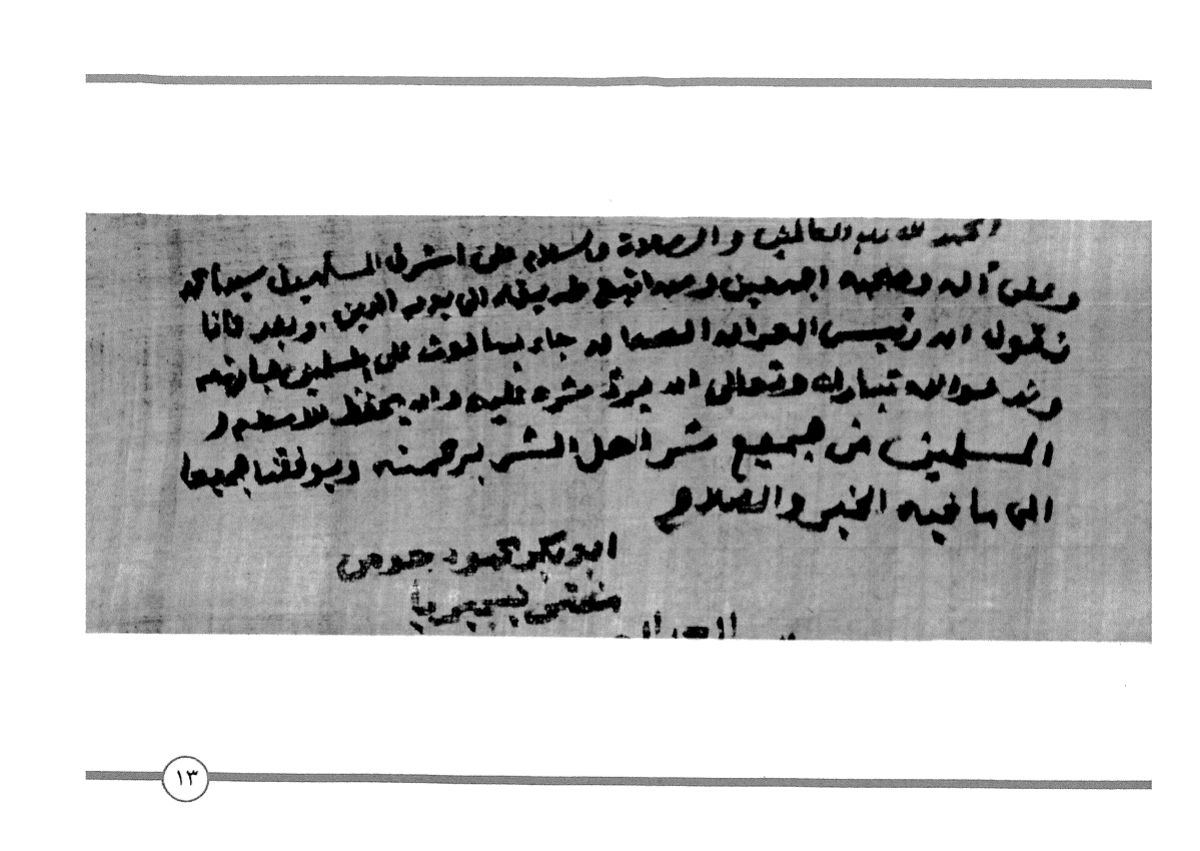 الحمد لله رب العالمين والصلاة والسلام على اشرف المرسلين سيدنا محمد
وعلى آله وصحبه اجمعين ومن اتبع طريقه الى يوم الدين. وبعد فانا
نقول ان رئيس العراق الصدام جاء بما على المسلمين
وندعوالله تبارك وتعالى ان يرد شره عليه وان يحفظ الاسلام و
المسلمين من جميع شر اهل الشر برحمته ويوفقنا جميعا
الى ما فيه الخير والصلاح
ابوبكر محمود جومي
مفتى نيجيريا
١٣